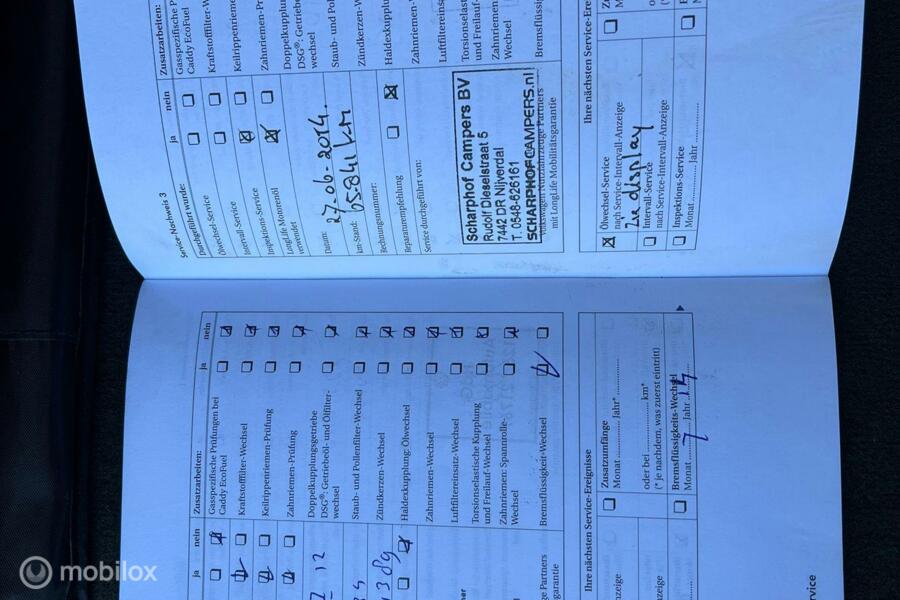 Service-Nachweis 3
Durchgeführt wurde:
ja
nein
Ölwechsel-Service
Intervall-Service
Inspektions-Service
LongLife Motorenöl
verwendet
Datum: 27-06-2014.
km-Stand: 65.841 KM
Rechnungsnummer:
Reparaturempfehlung
Service durchgeführt von:
Scharphof Campers BV
Rudolf Dieselstraat 5
7442 DR Nijverdal
T. 0548-626161
SCHARPHOFCAMPERS.nl
Volkswagen Nutzfahrzeuge Partners
mit LongLife Mobilitätsgarantie
Ölwechsel-Service
nach Service-Intervall-Anzeige
zie display
Intervall-Service
nach Service-Intervall-Anzeige
Inspektions-Service
Monat
Jahr
Zusatzarbeiten:
Gasspezifische
Caddy EcoFuel
Kraftstofffilter-W
Keilrippenriemen-
Zahnriemen-Pr
Doppelkupplun
DSG®: Getriebe
wechsel
Staub- und Pol
Zündkerzen-W
Haldexkupplun
Zahnriemen-W
Luftfiltereinsat
Torsionselast
und Freilauf-
Zahnriemen
Wechsel
Bremsflüssig
Ihre nächsten Service-Ereig
ja
nein
12
89
Partners
garantie
nzeige
nzeige
rvice
Zusatzarbeiten:
ja
nein
Gasspezifische Prüfungen bei
Caddy EcoFuel
Kraftstofffilter-Wechsel
Keilrippenriemen-Prüfung
Zahnriemen-Prüfung
Doppelkupplungsgetriebe
DSG®: Getriebeöl- und Ölfilter-
wechsel
Staub- und Pollenfilter-Wechsel
Zündkerzen-Wechsel
Haldexkupplung: Ölwechsel
Zahnriemen-Wechsel
Luftfiltereinsatz-Wechsel
Torsionselastische Kupplung
und Freilauf-Wechsel
Zahnriemen: Spannrolle-
Wechsel
Bremsflüssigkeit-Wechsel
Ihre nächsten Service-Ereignisse
Zusatzumfänge
Monat Jahr*
oder bei km*
(* je nachdem, was zuerst eintritt)
Bremsflüssigkeits-Wechsel
Monat 7 Jahr 14
mobilox